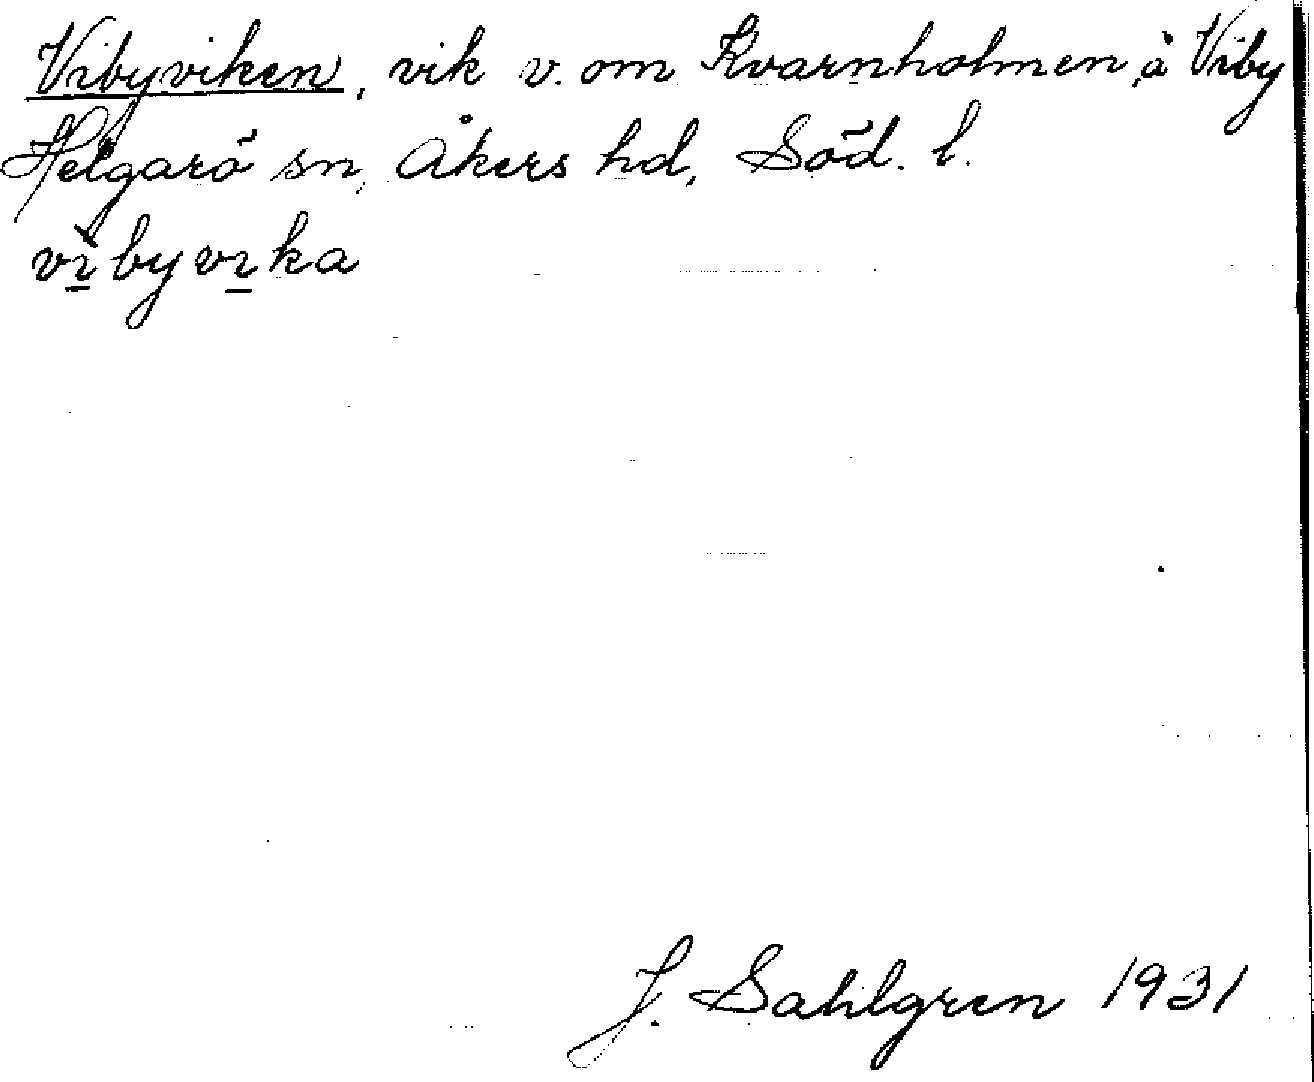 Vibyviken, vik v. om Kvarnholmen, å Viby
Helgarö sn, Åkers hd, Söd. l.
vìbyvika
J. Sahlgren 1931